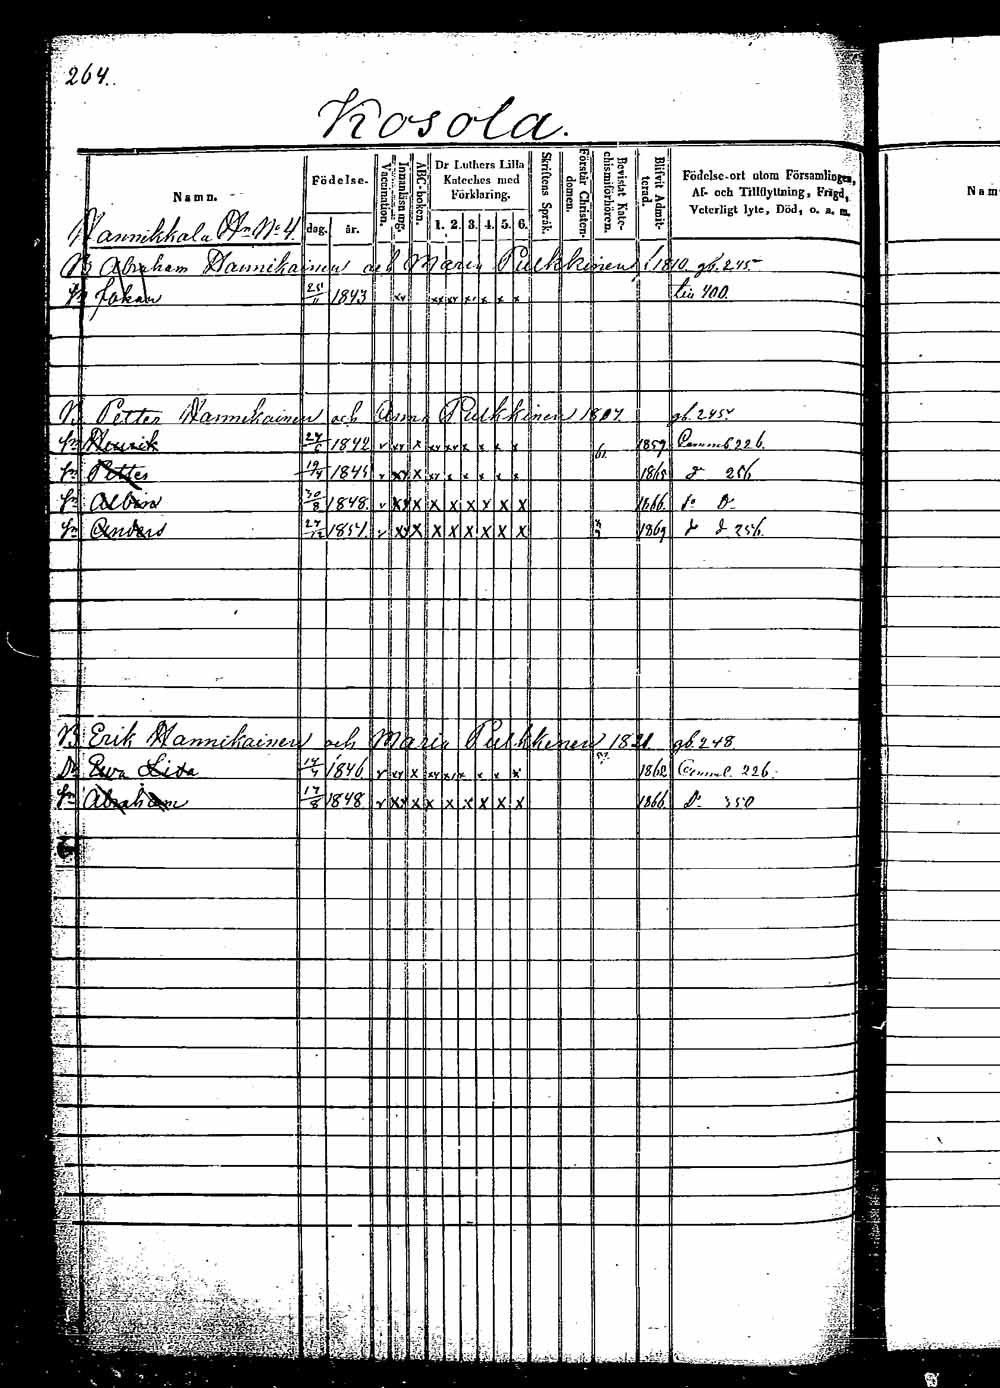 264.
Kosola.
Namn.
Födelse-
dag. år.
Vaccination.
Innanläsning.
ABC-boken.
Dr Luthers Lilla Kateches med Förklaring.
1. 2. 3. 4. 5. 6.
Skriftens Språk.
Förstår Christendomen.
Bevistat Katechismiförhören.
Blifvit Admitterad.
Födelse-ort utom Församlingen,
Af- och Tillflyttning, Frägd,
Veterligt lyte, Död, o. a. m.
Nam
Hannikkala Hn No 4.
B Abraham Hannikainen och Maria Pulkkinen 1810. gb. 245
Sn Johan 1843 xx xx xx x x x x 400.
B Petter Hannikainen och Anna Pulkkinen 1807. gb. 245
Sn Henrik 1842 v xx x xx xx x x x x 61. 1859. Comm 226.
Sn Petter 19/4 1845 v xx x xx x x x x x 1865 d 256
Sn Albin 30/8 1848. v xx x x x x x x x 1866. do Do
Sn Anders 27/12 1851. v xx x x x x x x x 1869 d d 256.
B Erik Hannikainen och Maria Pulkkinen 1821. gb. 248
Dr Ewa Lisa 1846 v xx x xx x x x x x 1862 Comm. 226.
Sn Abraham 17/8 1848 v xx x x x x x x x 1866. Do 350